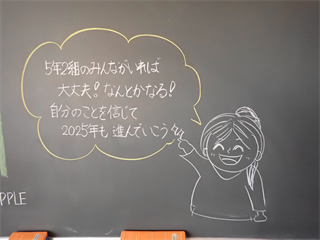 5年2組のみんながいれば
大丈夫!なんとかなる!
自分のことを信じて
2025年も進んでいこう
PPLE